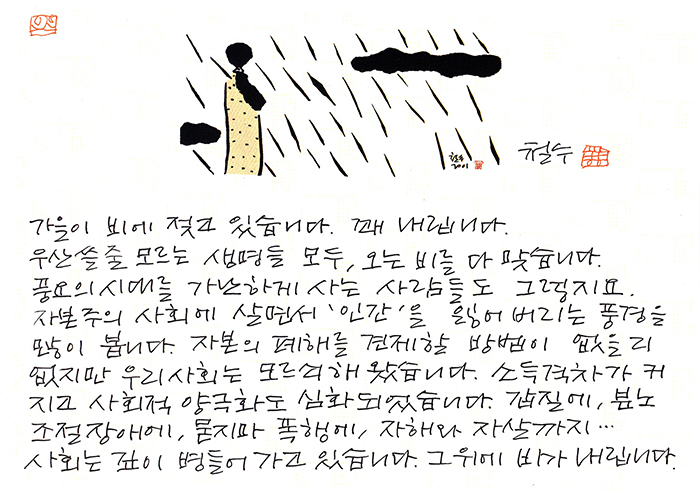 철수
2001
철수
가을이 비에 젖고 있습니다. 꽤 내립니다.
우산 쓸 줄 모르는 생명들 모두, 오는 비를 다 맞습니다.
풍요의 시대를 가난하게 사는 사람들도 그렇지요.
자본주의 사회에 살면서 '인간'을 잃어버리는 풍경을
많이 봅니다. 자본의 폐해를 견제할 방법이 없을 리
없지만 우리 사회는 모르쇠 해 왔습니다. 소득격차가 커
지고 사회적 양극화도 심화되었습니다. 갑질에, 분노
조절장애에, 묻지마 폭행에, 자해와 자살까지…
사회는 깊이 병들어 가고 있습니다. 그 위에 비가 내립니다.